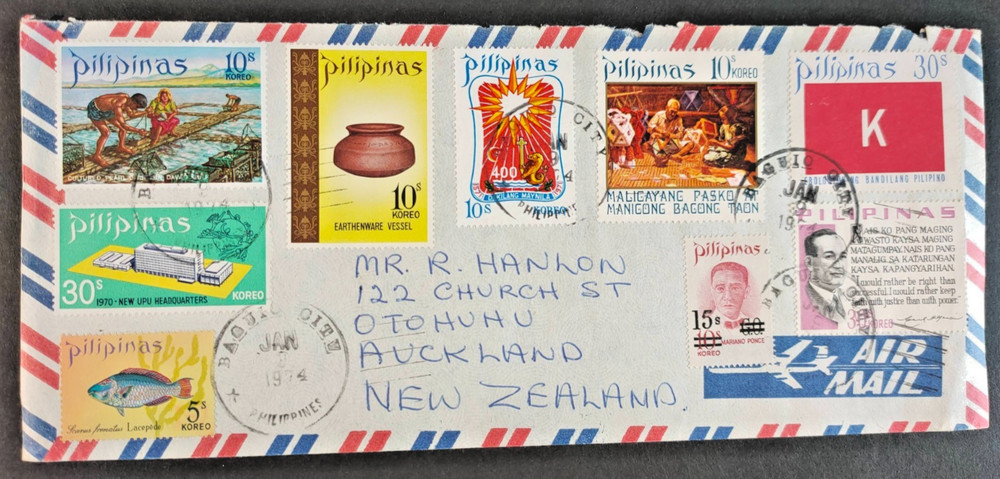 pilipinas 10s
KOREO
CULTURED PEARL
pilipinas
10s
KOREO
EARTHENWARE VESSEL
pilipinas
400
MAYNILA
10s KOREO
pilipinas 10s KOREO
MALIGAYANG PASKO AT
MANIGONG BAGONG TAON
pilipinas 30s
K
BANDILANG PILIPINO
pilipinas
30s
1970 · NEW UPU HEADQUARTERS KOREO
pilipinas
5s
KOREO
Lacepede
pilipinas
15s
10s G.O.
KOREO MARIANO PONCE
PILIPINAS
NAIS KO PANG MAGING
WASTO KAYSA MAGING
MATAGUMPAY. NAIS KO PANG
MANALIG SA KATARUNGAN
KAYSA KAPANGYARIHAN.
"I would rather be right than
successful. I would rather keep
faith with justice than with power."
KOREO
BAGUIO CITY
JAN
1974
PHILIPPINES
BAGUIO CITY
JAN
MR. R. HANLON
122 CHURCH ST
OTOHUHU
AUCKLAND
NEW ZEALAND.
AIR
MAIL